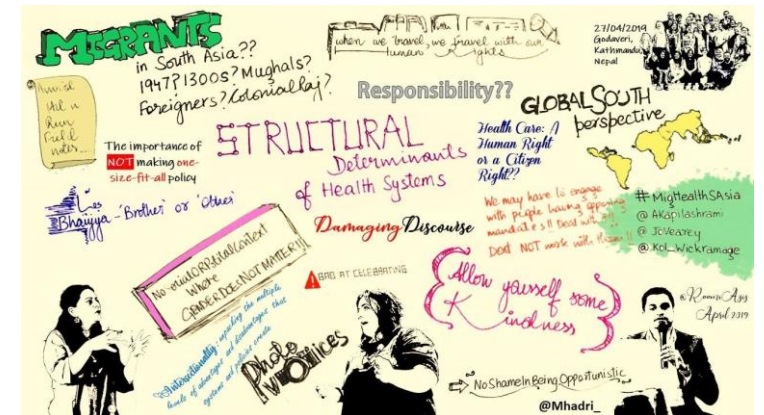 MIGRANTS
in South Asia??
1947? 1300s? Mughals?
Foreigners? Colonial Raj?
when we travel, we travel with our
human Rights
27/04/2019
Godaveri,
Kathmandu,
Nepal
Responsibility??
GLOBAL SOUTH
perspective
Run
Field
notes...
The importance of
NOT making one-
size-fit-all policy
STRUCTURAL
Determinants
of Health Systems
Health Care: A
Human Right
or a Citizen
Right??
Bhaiyya - 'Brother' or 'Other'
We may have to engage
with people having opposing
mandates!! Deal
Dont NOT work with them!!
#MigHealthSAsia
@Akapilashrami
@JoVearey
@Kol_Wickramage
Damaging Discourse
Context
Where
GENDER DOES NOT MATTER!!
BAD AT CELEBRATING
Allow yourself some
Kindness
April 2019
Intersectionality: unpacking the multiple
levels of advantages and disadvantages that
systems and policies create
Photo
VOICES
No Shame In Being Opportunistic
@Mhadri_